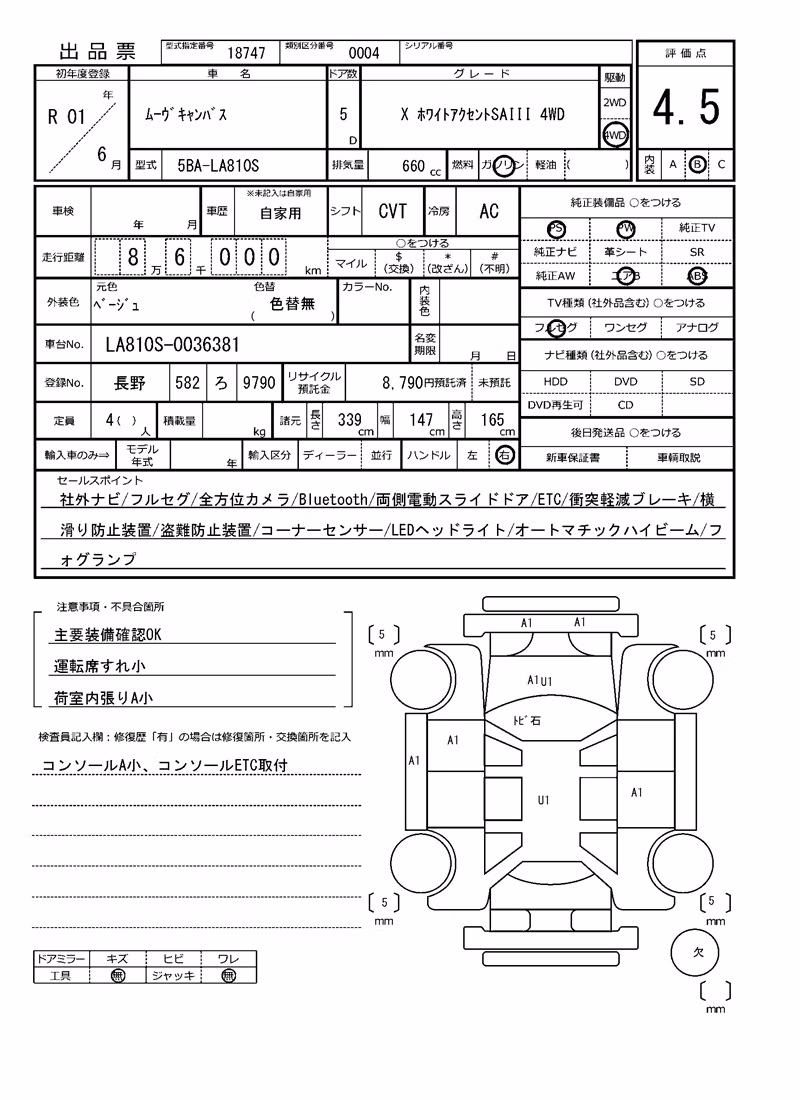 出品票 型式指定番号 18747 類別区分番号 0004 シリアル番号 評価点
初年度登録 車名 ドア数 グレード 駆動
R 01 年 6 月 ムーヴキャンバス 5 D X ホワイトアクセントSAIII 4WD 2WD 4WD 4.5
型式 5BA-LA810S 排気量 660 cc 燃料 ガソリン 軽油 ( ) 内装 A B C
車検 年 月 車歴 ※未記入は自家用 自家用 シフト CVT 冷房 AC 純正装備品 ○をつける
PS PW 純正TV
走行距離 8 万 6 千 0 0 0 km ○をつける マイル $(交換) *(改ざん) #(不明) 純正ナビ 革シート SR
純正AW エアB ABS
外装色 元色 ベージュ 色替 ( 色替無 ) カラーNo. 内装色 TV種類 (社外品含む) ○をつける
フルセグ ワンセグ アナログ
車台No. LA810S-0036381 名変期限 月 日 ナビ種類 (社外品含む) ○をつける
登録No. 長野 582 ろ 9790 リサイクル預託金 8,790円預託済 未預託 HDD DVD SD
DVD再生可 CD
定員 4( ) 人 積載量 kg 諸元 長さ 339 cm 幅 147 cm 高さ 165 cm 後日発送品 ○をつける
輸入車のみ⇒ モデル年式 年 輸入区分 ディーラー 並行 ハンドル 左 右 新車保証書 車輌取説
セールスポイント
社外ナビ/フルセグ/全方位カメラ/Bluetooth/両側電動スライドドア/ETC/衝突軽減ブレーキ/横
滑り防止装置/盗難防止装置/コーナーセンサー/LEDヘッドライト/オートマチックハイビーム/フ
ォグランプ
注意事項・不具合箇所
主要装備確認OK
運転席すれ小
荷室内張りA小
検査員記入欄：修復歴「有」の場合は修復箇所・交換箇所を記入
コンソールA小、コンソールETC取付
ドアミラー キズ ヒビ ワレ
工具 無 ジャッキ 無
A1 A1
5 mm 5 mm
A1 U1
トビ石
A1
A1
U1 A1
5 mm 5 mm
欠
mm